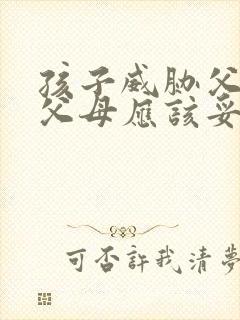 孩子威胁父
父母应该妥
可否許我清夢